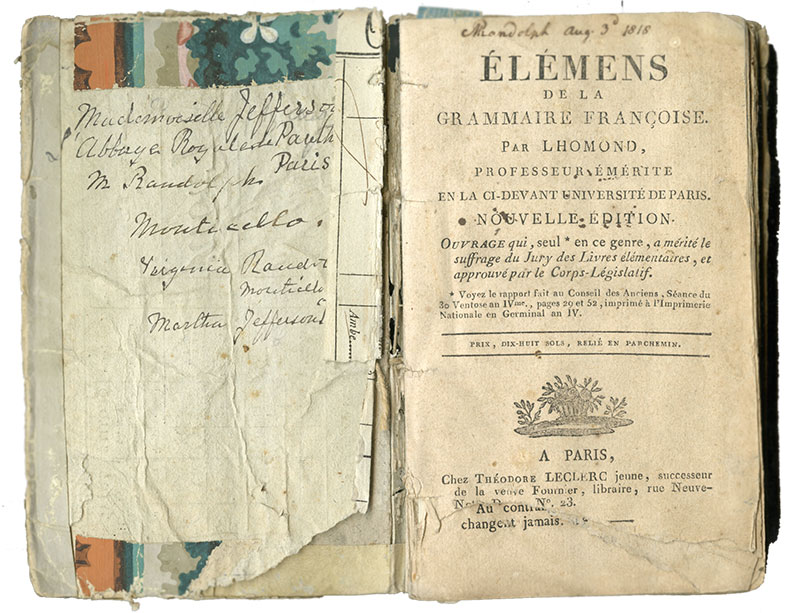 Mademoiselle Jefferson
Abbaye Royale de Panth
Paris
M Randolph
Monticello.
Virginia Randol
Monticello
Martha Jefferson
Ambe
MRandolph Aug. 3d 1818
ÉLÉMENS
DE LA
GRAMMAIRE FRANÇOISE.
PAR LHOMOND,
PROFESSEUR ÉMÉRITE
EN LA CI-DEVANT UNIVERSITÉ DE PARIS.
NOUVELLE ÉDITION.
OUVRAGE qui, seul * en ce genre, a mérité le
suffrage du Jury des Livres élémentaires, et
approuvé par le Corps-Législatif.
* Voyez le rapport fait au Conseil des Anciens, Séance du
30 Ventose an IVme., pages 29 et 52, imprimé à l'Imprimerie
Nationale en Germinal an IV.
PRIX, DIX-HUIT SOLS, RELIÉ EN PARCHEMIN.
A PARIS,
Chez THÉODORE LECLERC jeune, successeur
de la veuve Fournier, libraire, rue Neuve-
No. 23.
Au contrai
changent jamais.